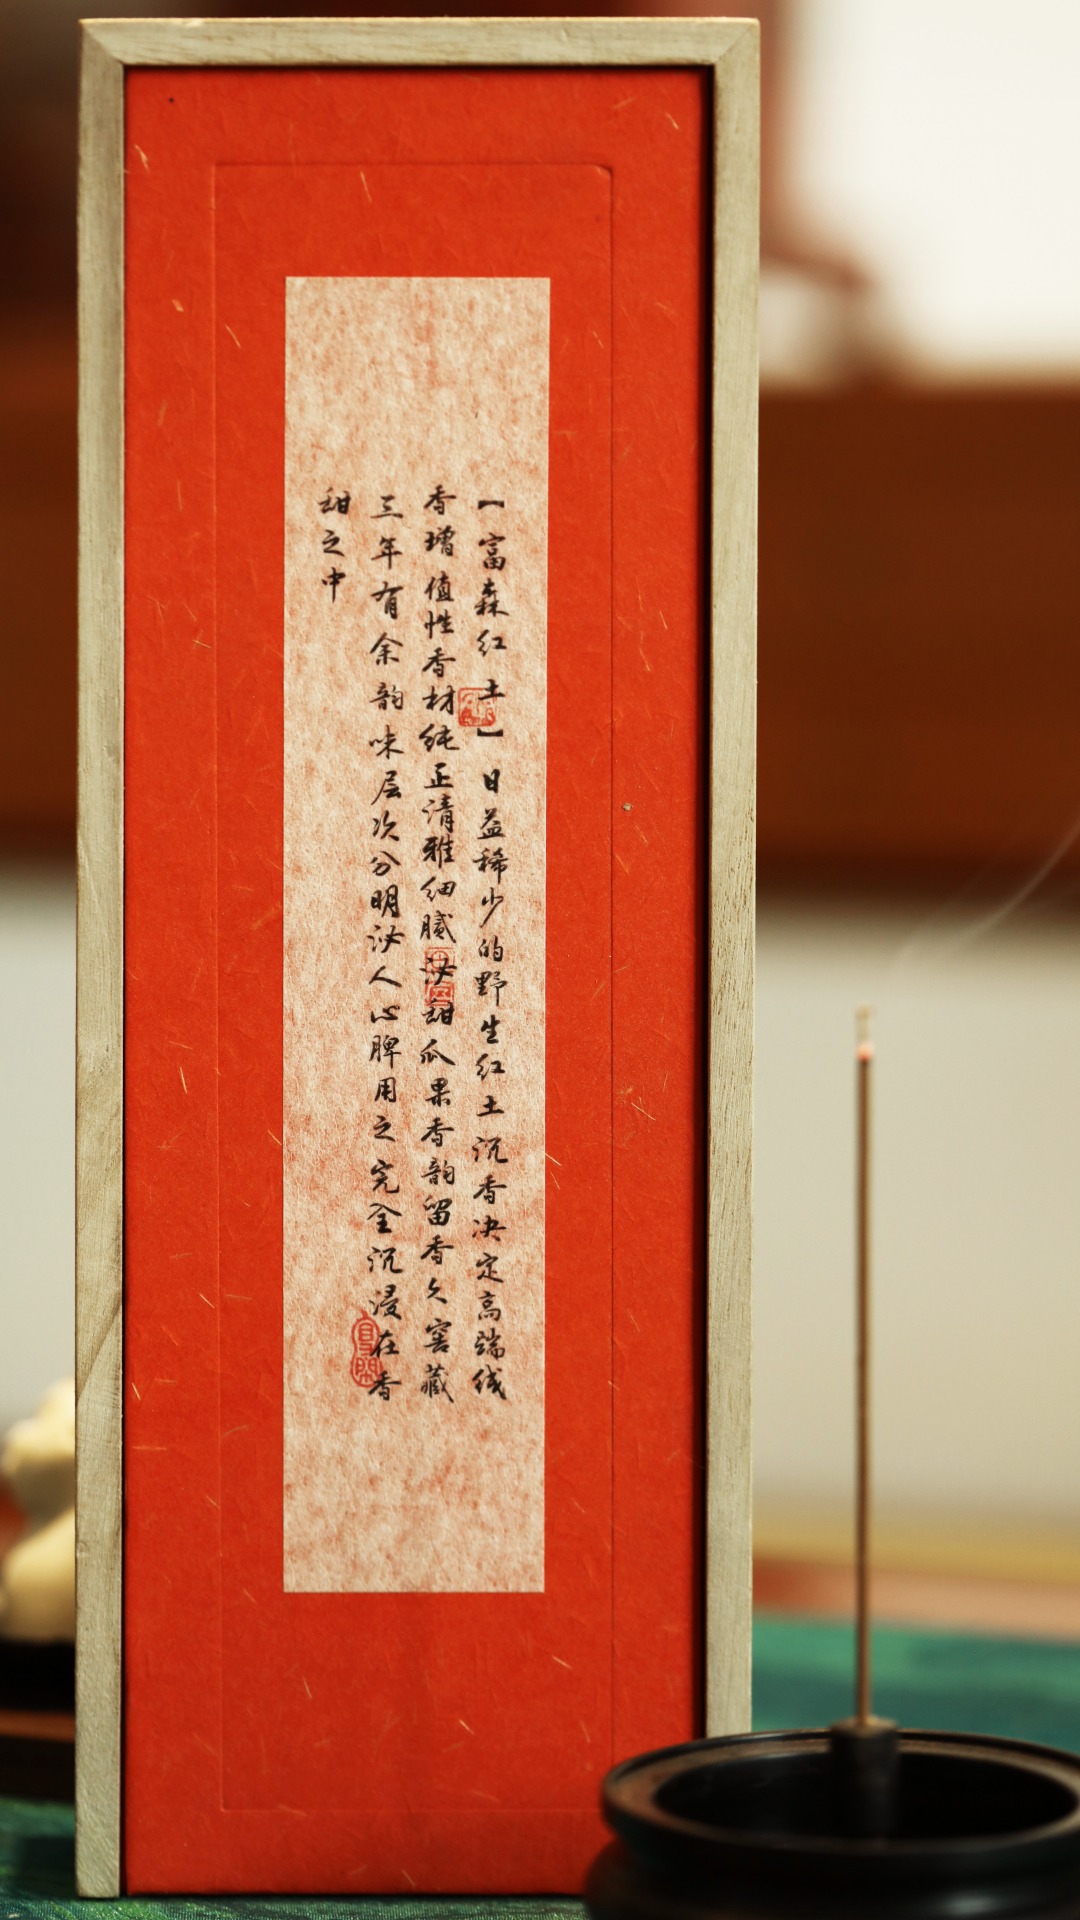 【富森红土】日益稀少的野生红土沉香决定高端线
香增值性香材纯正清雅细腻沁甜瓜果香韵留香久窖藏
三年有余韵味层次分明沁人心脾用之完全沉浸在香
甜之中